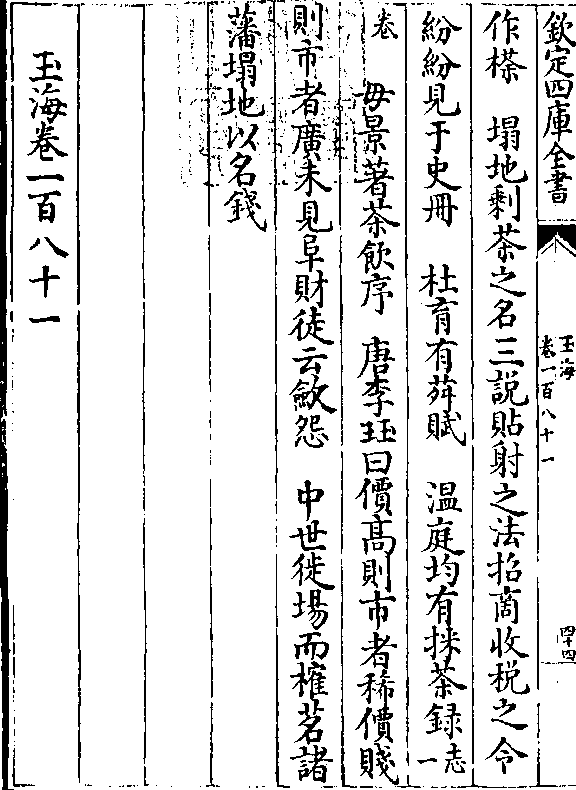 欽定四庫全書
玉海
卷一百八十一
四十四
作搽　塌地剩茶之名三說貼射之法招商收稅之令
紛紛見于史冊　杜育有荈賦　温庭均有採茶録志一
卷　毋景著茶飲序　唐李珏曰價髙則市者稀價賤
則市者廣未見阜財徒云歛怨　中世徙場而榷茗諸
藩塌地以名錢
玉海卷一百八十一